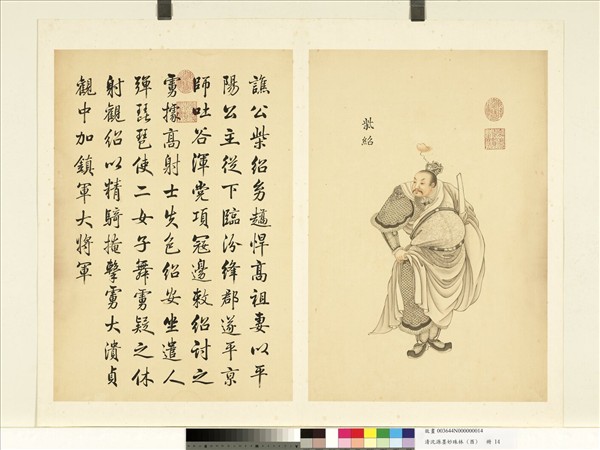 柴紹
譙公柴紹勇趫悍高祖妻以平
陽公主從下臨汾絳郡遂平京
師吐谷渾党項寇邊敕紹討之
虜據高射士失色紹安坐遣人
彈琵琶使二女子舞虜疑之休
射觀紹以精騎掩擊虜大潰貞
觀中加鎮軍大將軍
故畫 003644N000000014
清沈源墨妙珠林 冊 14